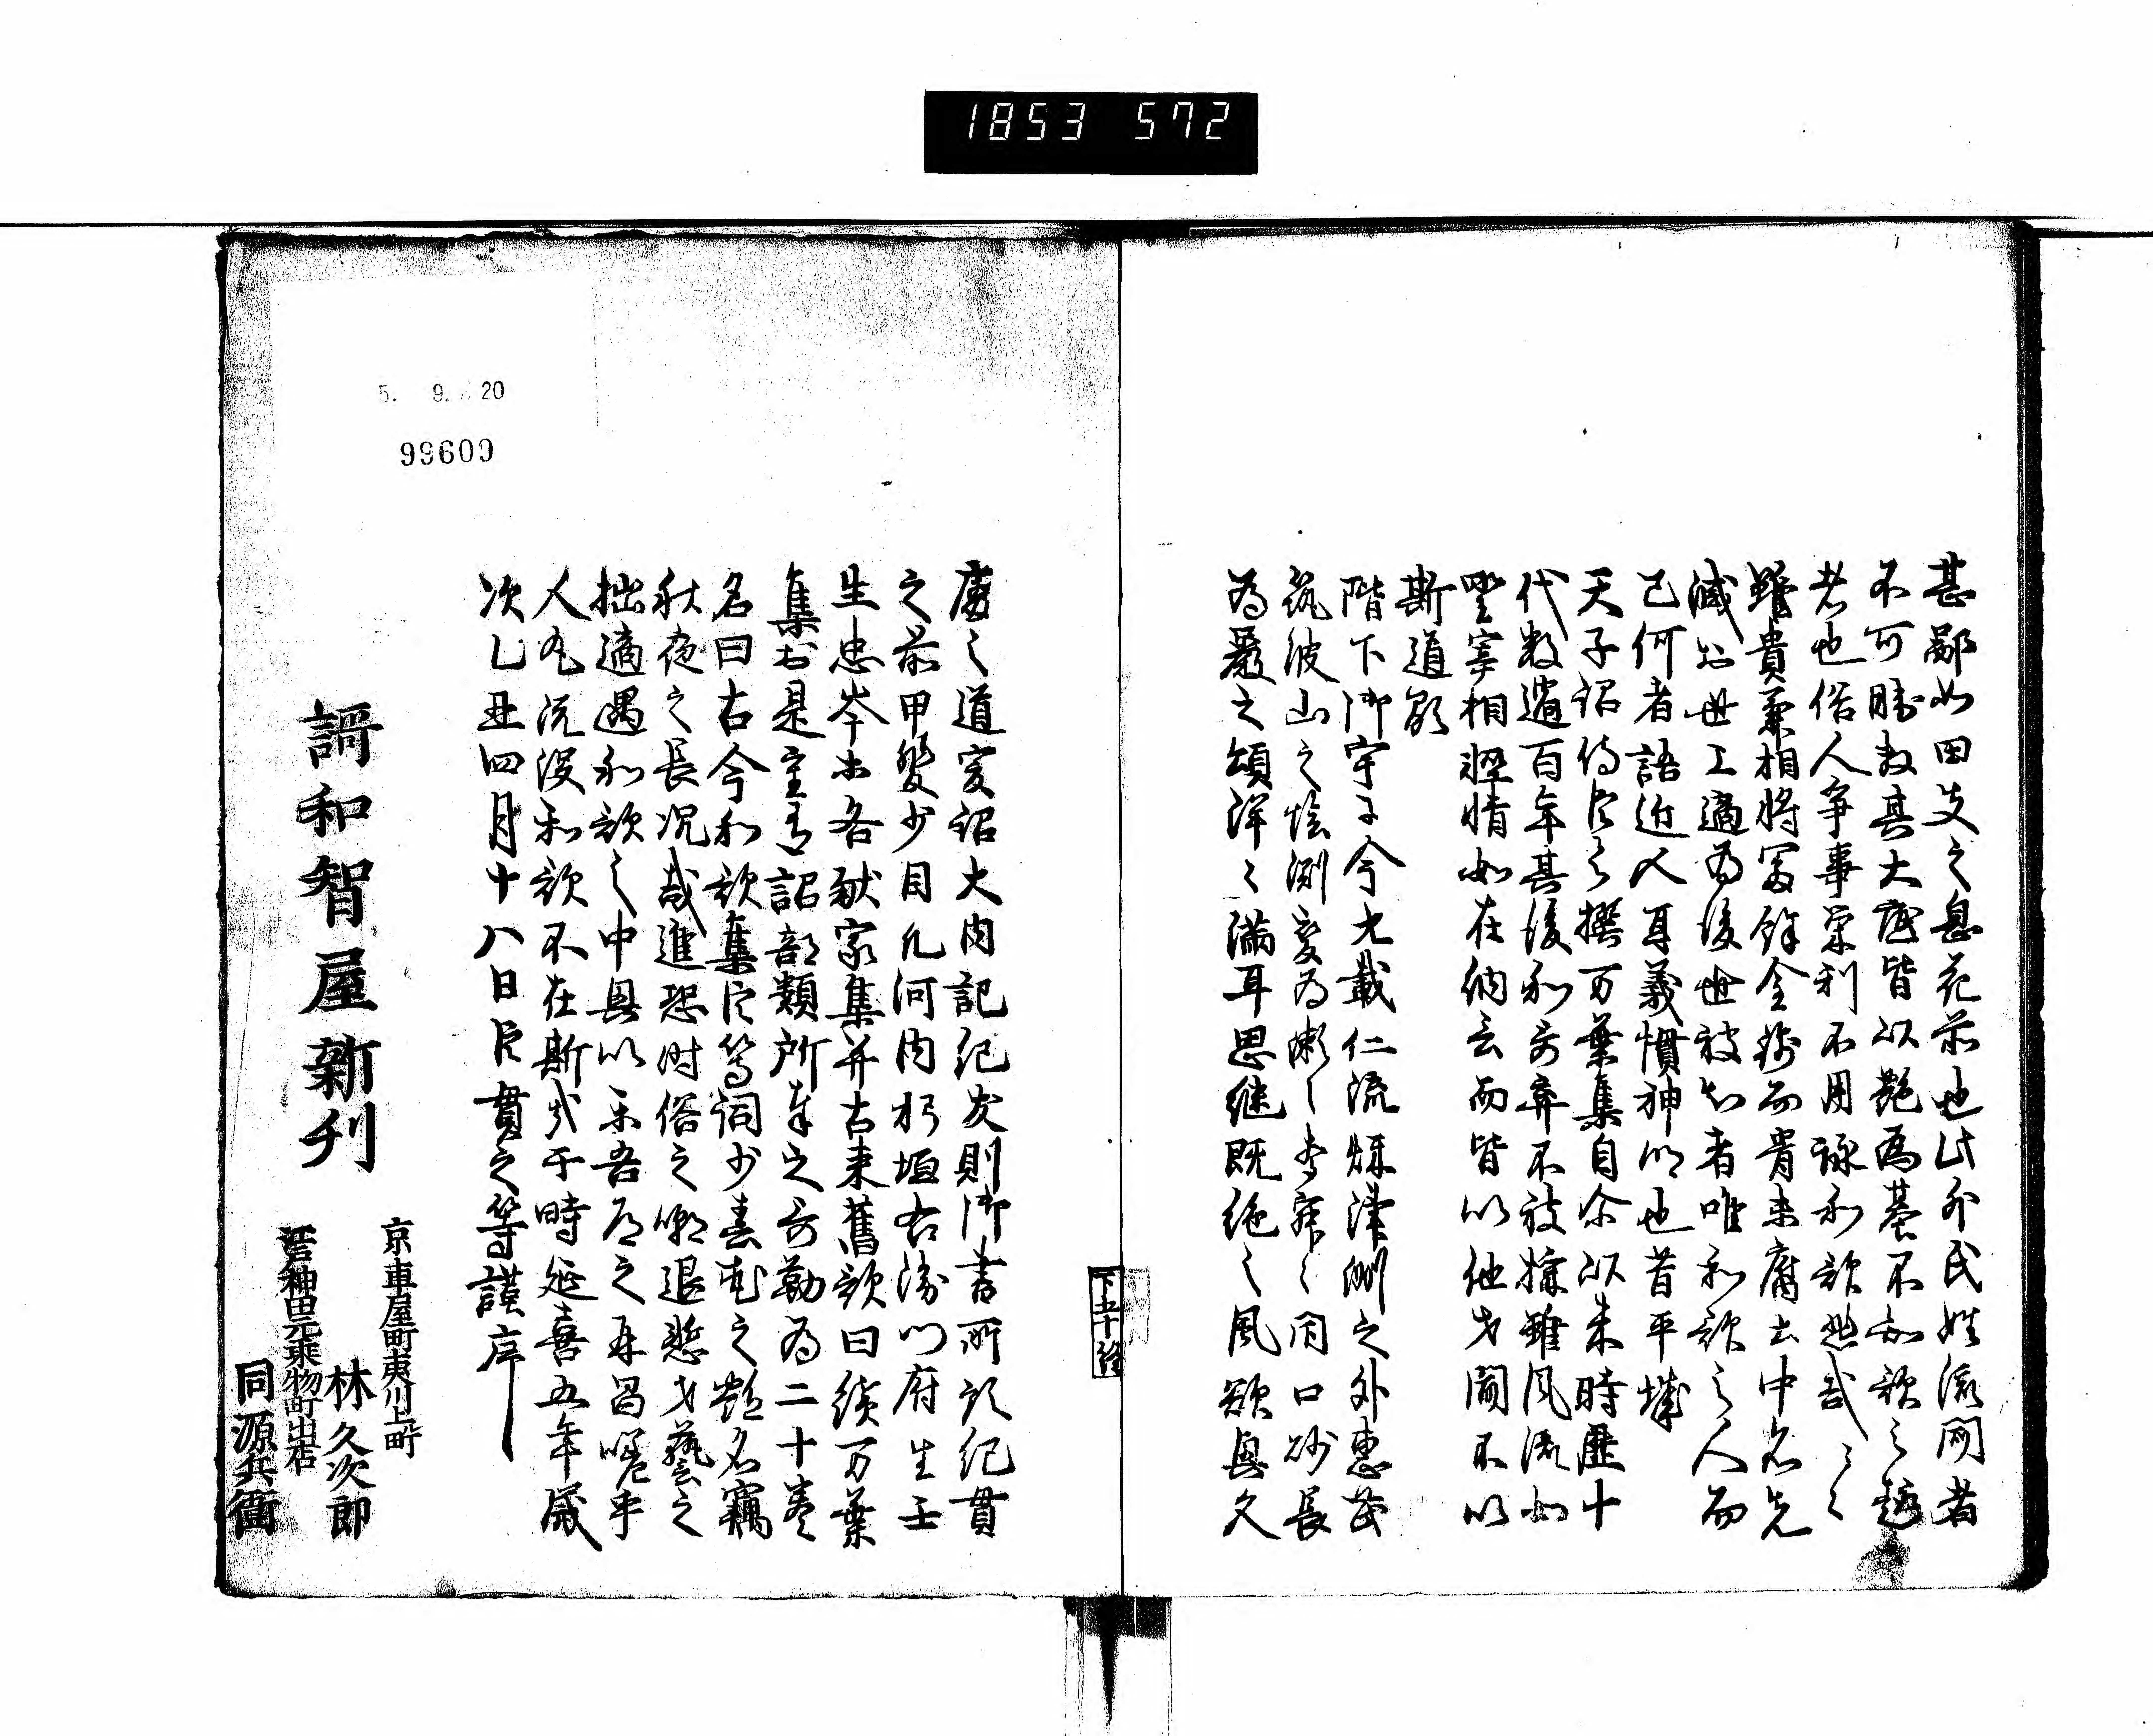 1853 572
甚鄙如田夫之息花前也此外氏姓流聞者
不可勝数其大底皆以艶為基不知歌之趣
者也俗人争事栄利不用詠和歌悲哉々々
雖貴兼相将富餘金銭而骨未腐土中名先
滅於世上適為後世被知者唯和歌之人而
已何者語近人耳義慣神明也昔平城
天子詔侍臣令撰万葉集自尓以来時歴十
代数過百年其後和哥弃不被採雖風流如
野宰相軽情如在納言而皆以他才聞不以
斯道顕
階下御宇于今九載仁流秋津洲之外恵茂
筑波山之陰淵変為瀬之声寂々閇口砂長
為巌之頌洋々満耳思継既絶之風欲興久
下五十終
廃之道爰詔大内記紀友則御書所預紀貫
之前甲斐少目凡河内躬恒右衛門府生壬
生忠岑等各献家集并古来舊歌曰續万葉
集於是重有詔部類所奉之哥勒為二十巻
名曰古今和歌集臣等詞少春花之艶名竊
秋夜之長况哉進恐時俗之嘲退慙才藝之
拙適遇和歌之中興以楽吾道之再昌嗟乎
人丸既没和歌不在斯哉于時延喜五年歳
次乙丑四月十八日臣貫之等謹序
謌和智屋新刊
京車屋町夷川上町
林久次郎
神田元乗物町出店
同源兵衛
5. 9. 20
99609